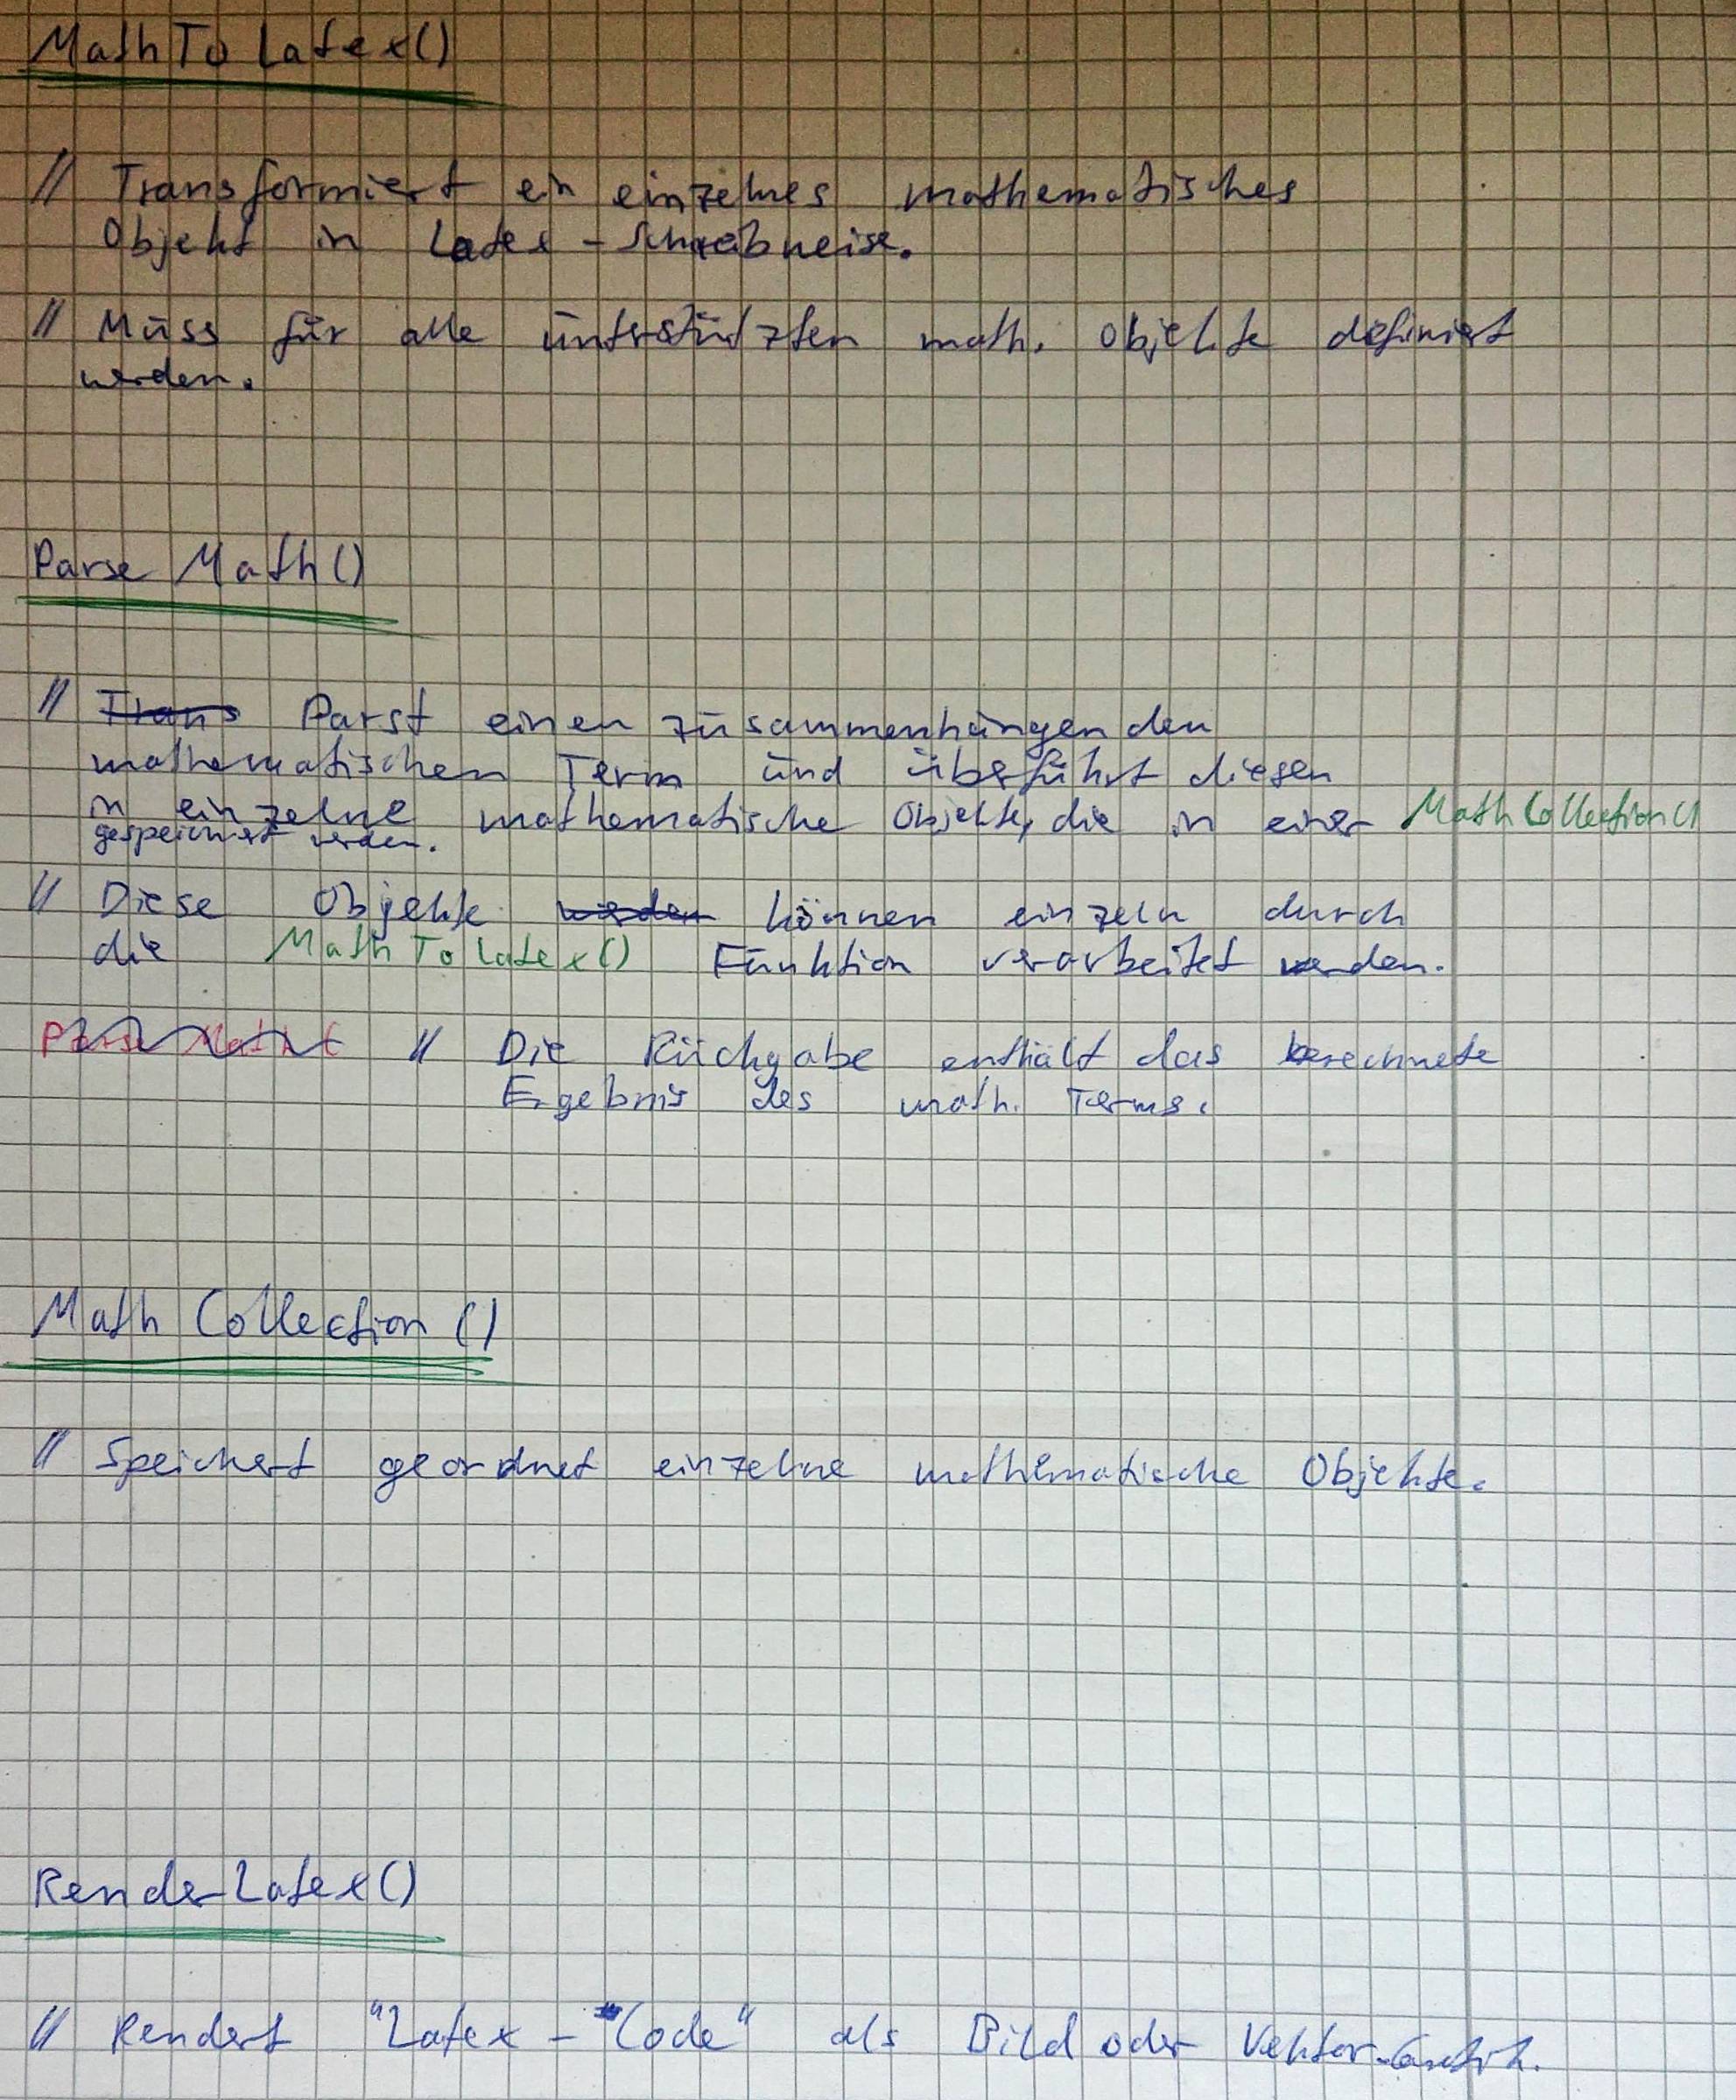 MathToLatex()
// Transformiert ein einzelnes mathematisches
Objekt in Latex - Schreibweise.
// Muss für alle unterstützten math. Objekte definiert
werden.
Parse Math()
// Trans Parst einen zusammenhängenden
mathematischen Term und überführt diesen
in einzelne mathematische Objekte, die in einer MathCollection()
gespeichert werden.
// Diese Objekte werden können einzeln durch
die MathToLatex() Funktion verarbeitet werden.
Parse Math // Die Rückgabe enthält das berechnete
Ergebnis des math. Terms.
Math Collection ()
// Speichert geordnet einzelne mathematische Objekte.
RenderLatex()
// Rendert "Latex - Code" als Bild oder Vektor-Grafik.